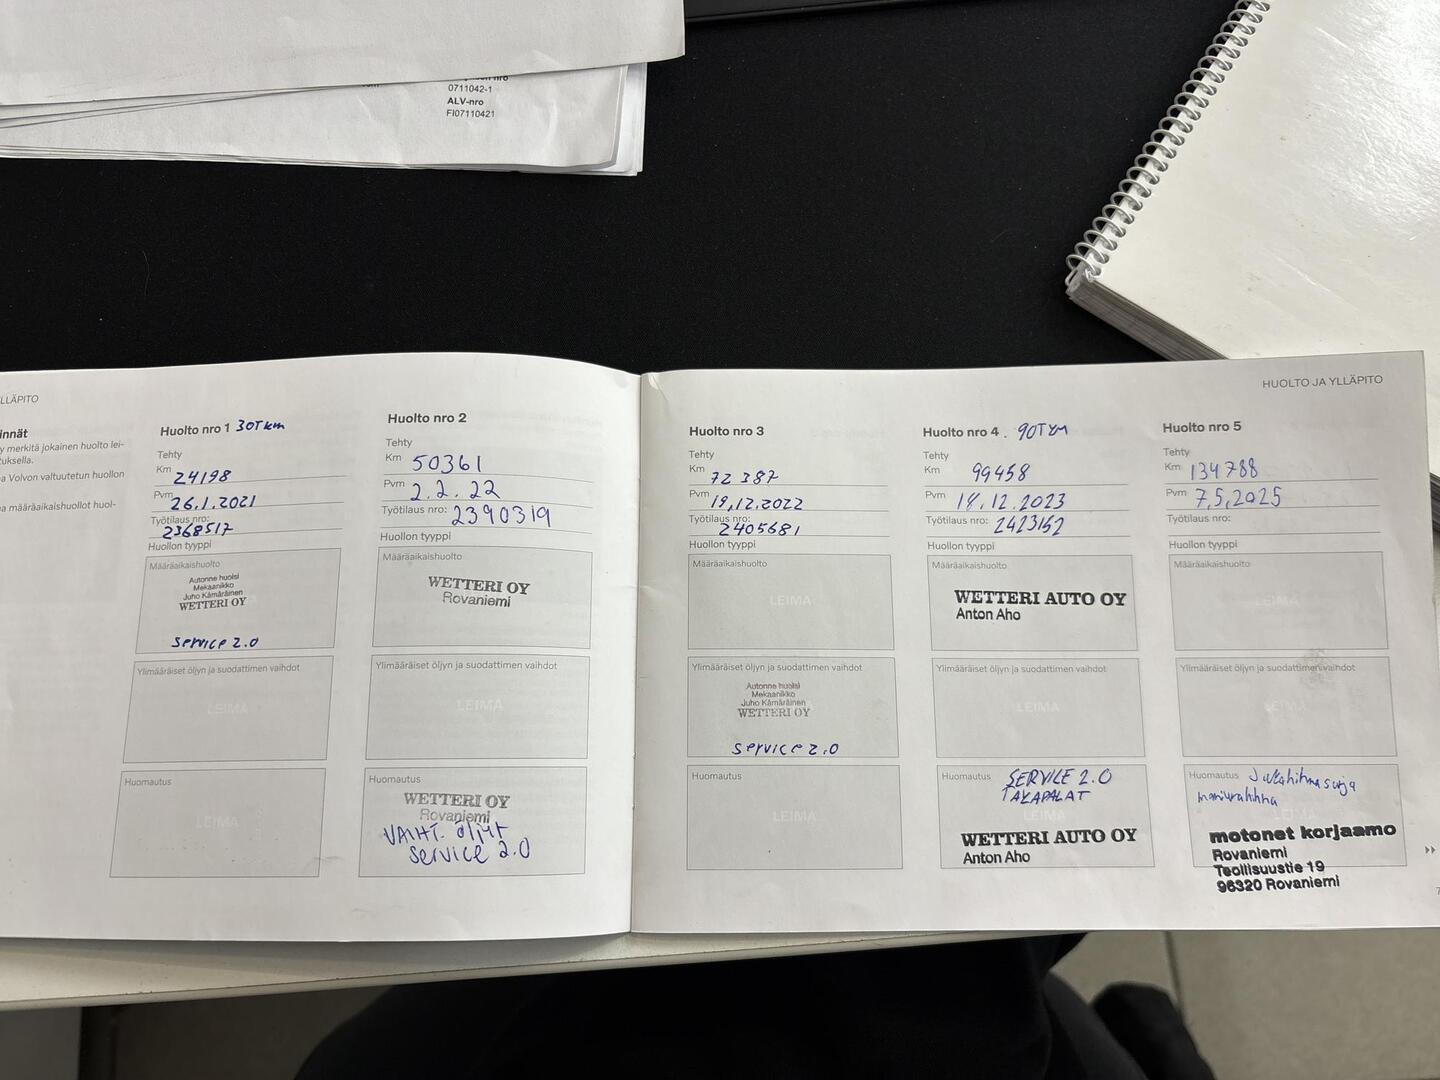 0711042-1
ALV-nro
FI07110421
HUOLTO JA YLLÄPITO
Huolto nro 1 30Tkm
Tehty
Km 24198
Pvm 26.1.2021
Työtilaus nro: 2368517
Huollon tyyppi
Määräaikaishuolto
Autonne huolsi
Mekaanikko
Juho Kämäräinen
WETTERI OY
Service 2.0
Ylimääräiset öljyn ja suodattimen vaihdot
LEIMA
Huomautus
LEIMA
Huolto nro 2
Tehty
Km 50361
Pvm 2.2.22
Työtilaus nro: 2390319
Huollon tyyppi
Määräaikaishuolto
WETTERI OY
Rovaniemi
Ylimääräiset öljyn ja suodattimen vaihdot
LEIMA
Huomautus
WETTERI OY
Rovaniemi
VAIHT. öljyt
Service 2.0
Huolto nro 3
Tehty
Km 72 387
Pvm 19.12.2022
Työtilaus nro: 2405681
Huollon tyyppi
Määräaikaishuolto
LEIMA
Ylimääräiset öljyn ja suodattimen vaihdot
Autonne huolsi
Mekaanikko
Juho Kämäräinen
WETTERI OY
Service 2.0
Huomautus
LEIMA
Huolto nro 4. 90Tkm
Tehty
Km 99458
Pvm 18.12.2023
Työtilaus nro: 2423152
Huollon tyyppi
Määräaikaishuolto
WETTERI AUTO OY
Anton Aho
Ylimääräiset öljyn ja suodattimen vaihdot
LEIMA
Huomautus SERVICE 2.0
TAKAPALAT
WETTERI AUTO OY
Anton Aho
Huolto nro 5
Tehty
Km 134788
Pvm 7.5.2025
Työtilaus nro:
Huollon tyyppi
Määräaikaishuolto
LEIMA
Ylimääräiset öljyn ja suodattimen vaihdot
LEIMA
Huomautus
motonet korjaamo
Rovaniemi
Teollisuustie 19
96320 Rovaniemi